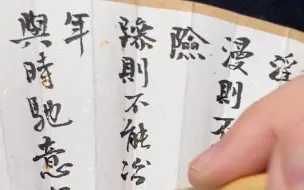 淫
漫則不
險
躁則不能治
年
與時馳意